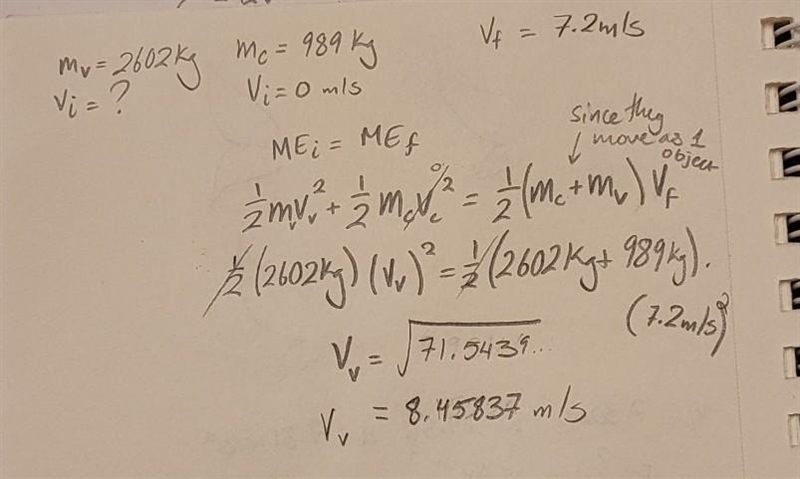 m_v = 2602kg m_c = 989 kg V_f = 7.2m/s
V_i = ? V_i = 0 m/s
since they
move as 1
object
ME_i = ME_f
1/2 m_v V_v^2 + 1/2 m_c V_c^2 0 = 1/2 (m_c + m_v) V_f
1/2 (2602kg) (V_v)^2 = 1/2 (2602kg + 989kg).
(7.2m/s)^2
V_v = √71.5439...
V_v = 8.45837 m/s